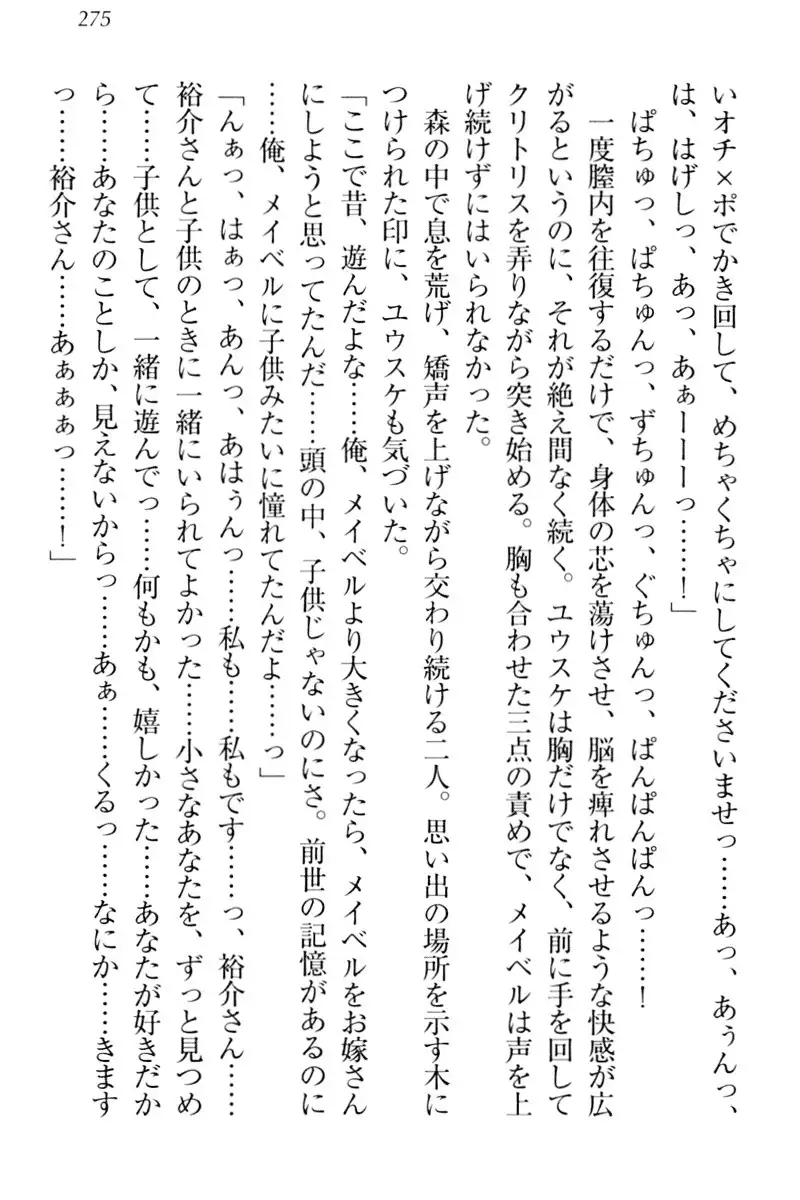 275
いオチ×ポでかき回して、めちゃくちゃにしてくださいませっ……あっ、あぅんっ、
は、はげしっ、あっ、あぁーーーっ……！」
ぱちゅっ、ぱちゅんっ、ずちゅんっ、ぐちゅんっ、ぱんぱんぱんっ……！
一度膣内を往復するだけで、身体の芯を蕩けさせ、脳を痺れさせるような快感が広
がるというのに、それが絶え間なく続く。ユウスケは胸だけでなく、前に手を回して
クリトリスを弄りながら突き始める。胸も合わせた三点の責めで、メイベルは声を上
げ続けずにはいられなかった。
森の中で息を荒げ、矯声を上げながら交わり続ける二人。思い出の場所を示す木に
つけられた印に、ユウスケも気づいた。
「ここで昔、遊んだよな……俺、メイベルより大きくなったら、メイベルをお嫁さん
にしようと思ってたんだ……頭の中、子供じゃないのにさ。前世の記憶があるのに
……俺、メイベルに子供みたいに憧れてたんだよ……っ」
「んぁっ、はぁっ、あんっ、あはぅんっ……私も……私もです……っ、裕介さん……
裕介さんと子供のときに一緒にいられてよかった……小さなあなたを、ずっと見つめ
て……子供として、一緒に遊んでっ……何もかも、嬉しかった……あなたが好きだか
ら……あなたのことしか、見えないからっ……あぁ……くるっ……なにか……きます
っ……裕介さん……あぁぁぁっ……！」